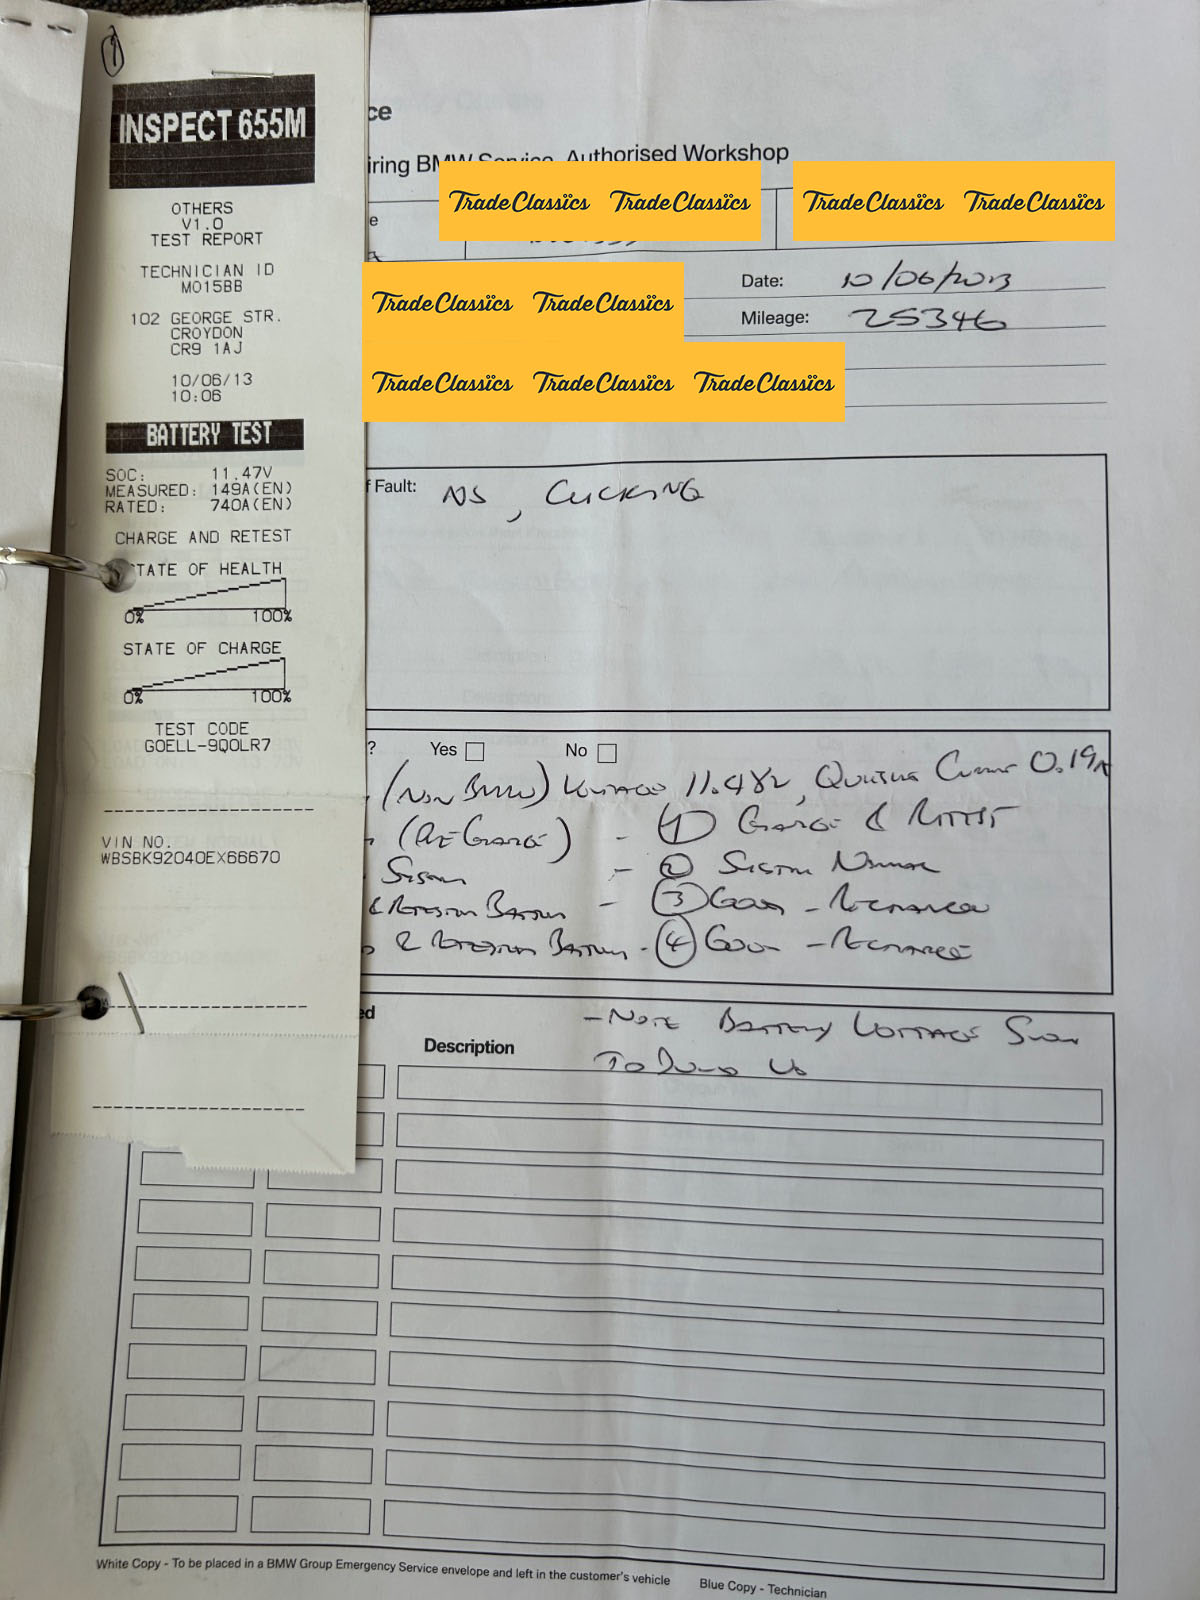 1
INSPECT 655M
OTHERS
V1.0
TEST REPORT
TECHNICIAN ID
M015BB
102 GEORGE STR.
CROYDON
CR9 1AJ
10/06/13
10:06
BATTERY TEST
SOC: 11.47V
MEASURED: 149A(EN)
RATED: 740A(EN)
CHARGE AND RETEST
STATE OF HEALTH
0% 100%
STATE OF CHARGE
0% 100%
TEST CODE
GOELL-9QOLR7
VIN NO.
WBSBK92040EX66670
ce
iring BMW Service Authorised Workshop
TradeClassics TradeClassics TradeClassics TradeClassics
e
TradeClassics TradeClassics
Date: 10/06/2013
Mileage: 25346
TradeClassics TradeClassics TradeClassics
f Fault: NS, CLICKING
? Yes No
(NON BMW) VOLTAGE 11.48V, Current 0.19A
(RE CHARGE) - 1 CHARGE & RETEST
SYSTEM - 2 SYSTEM NORMAL
& RETESTED BATTERY - 3 GOOD - RECHARGE
& RETESTED BATTERY - 4 GOOD - RECHARGE
ed
- NOTE BATTERY VOLTAGE
Description
White Copy - To be placed in a BMW Group Emergency Service envelope and left in the customer's vehicle
Blue Copy - Technician